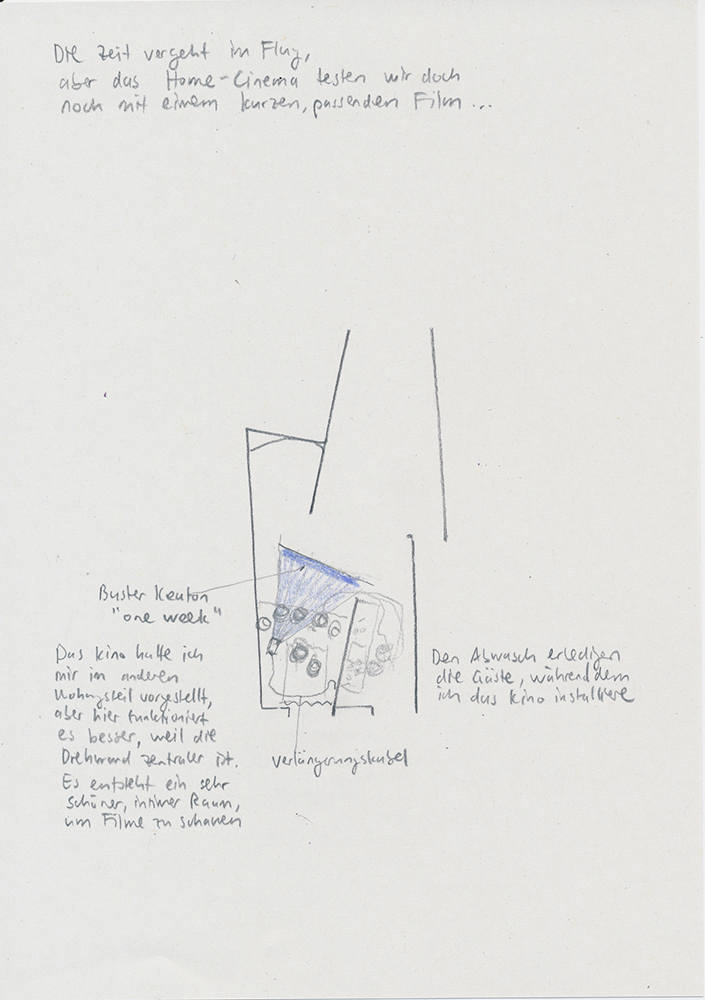 Die Zeit vergeht im Flug,
aber das Home-Cinema testen wir doch
noch mit einem kurzen, passenden Film ...
Buster Keaton
"one week"
Das Kino hatte ich
mir im anderen
Wohnungsteil vorgestellt,
aber hier funktioniert
es besser, weil die
Drehwand zentraler ist.
Es entsteht ein sehr
schöner, intimer Raum,
um Filme zu schauen
Verlängerungskabel
Den Abwasch erledigen
die Gäste, währenddem
ich das Kino installiere